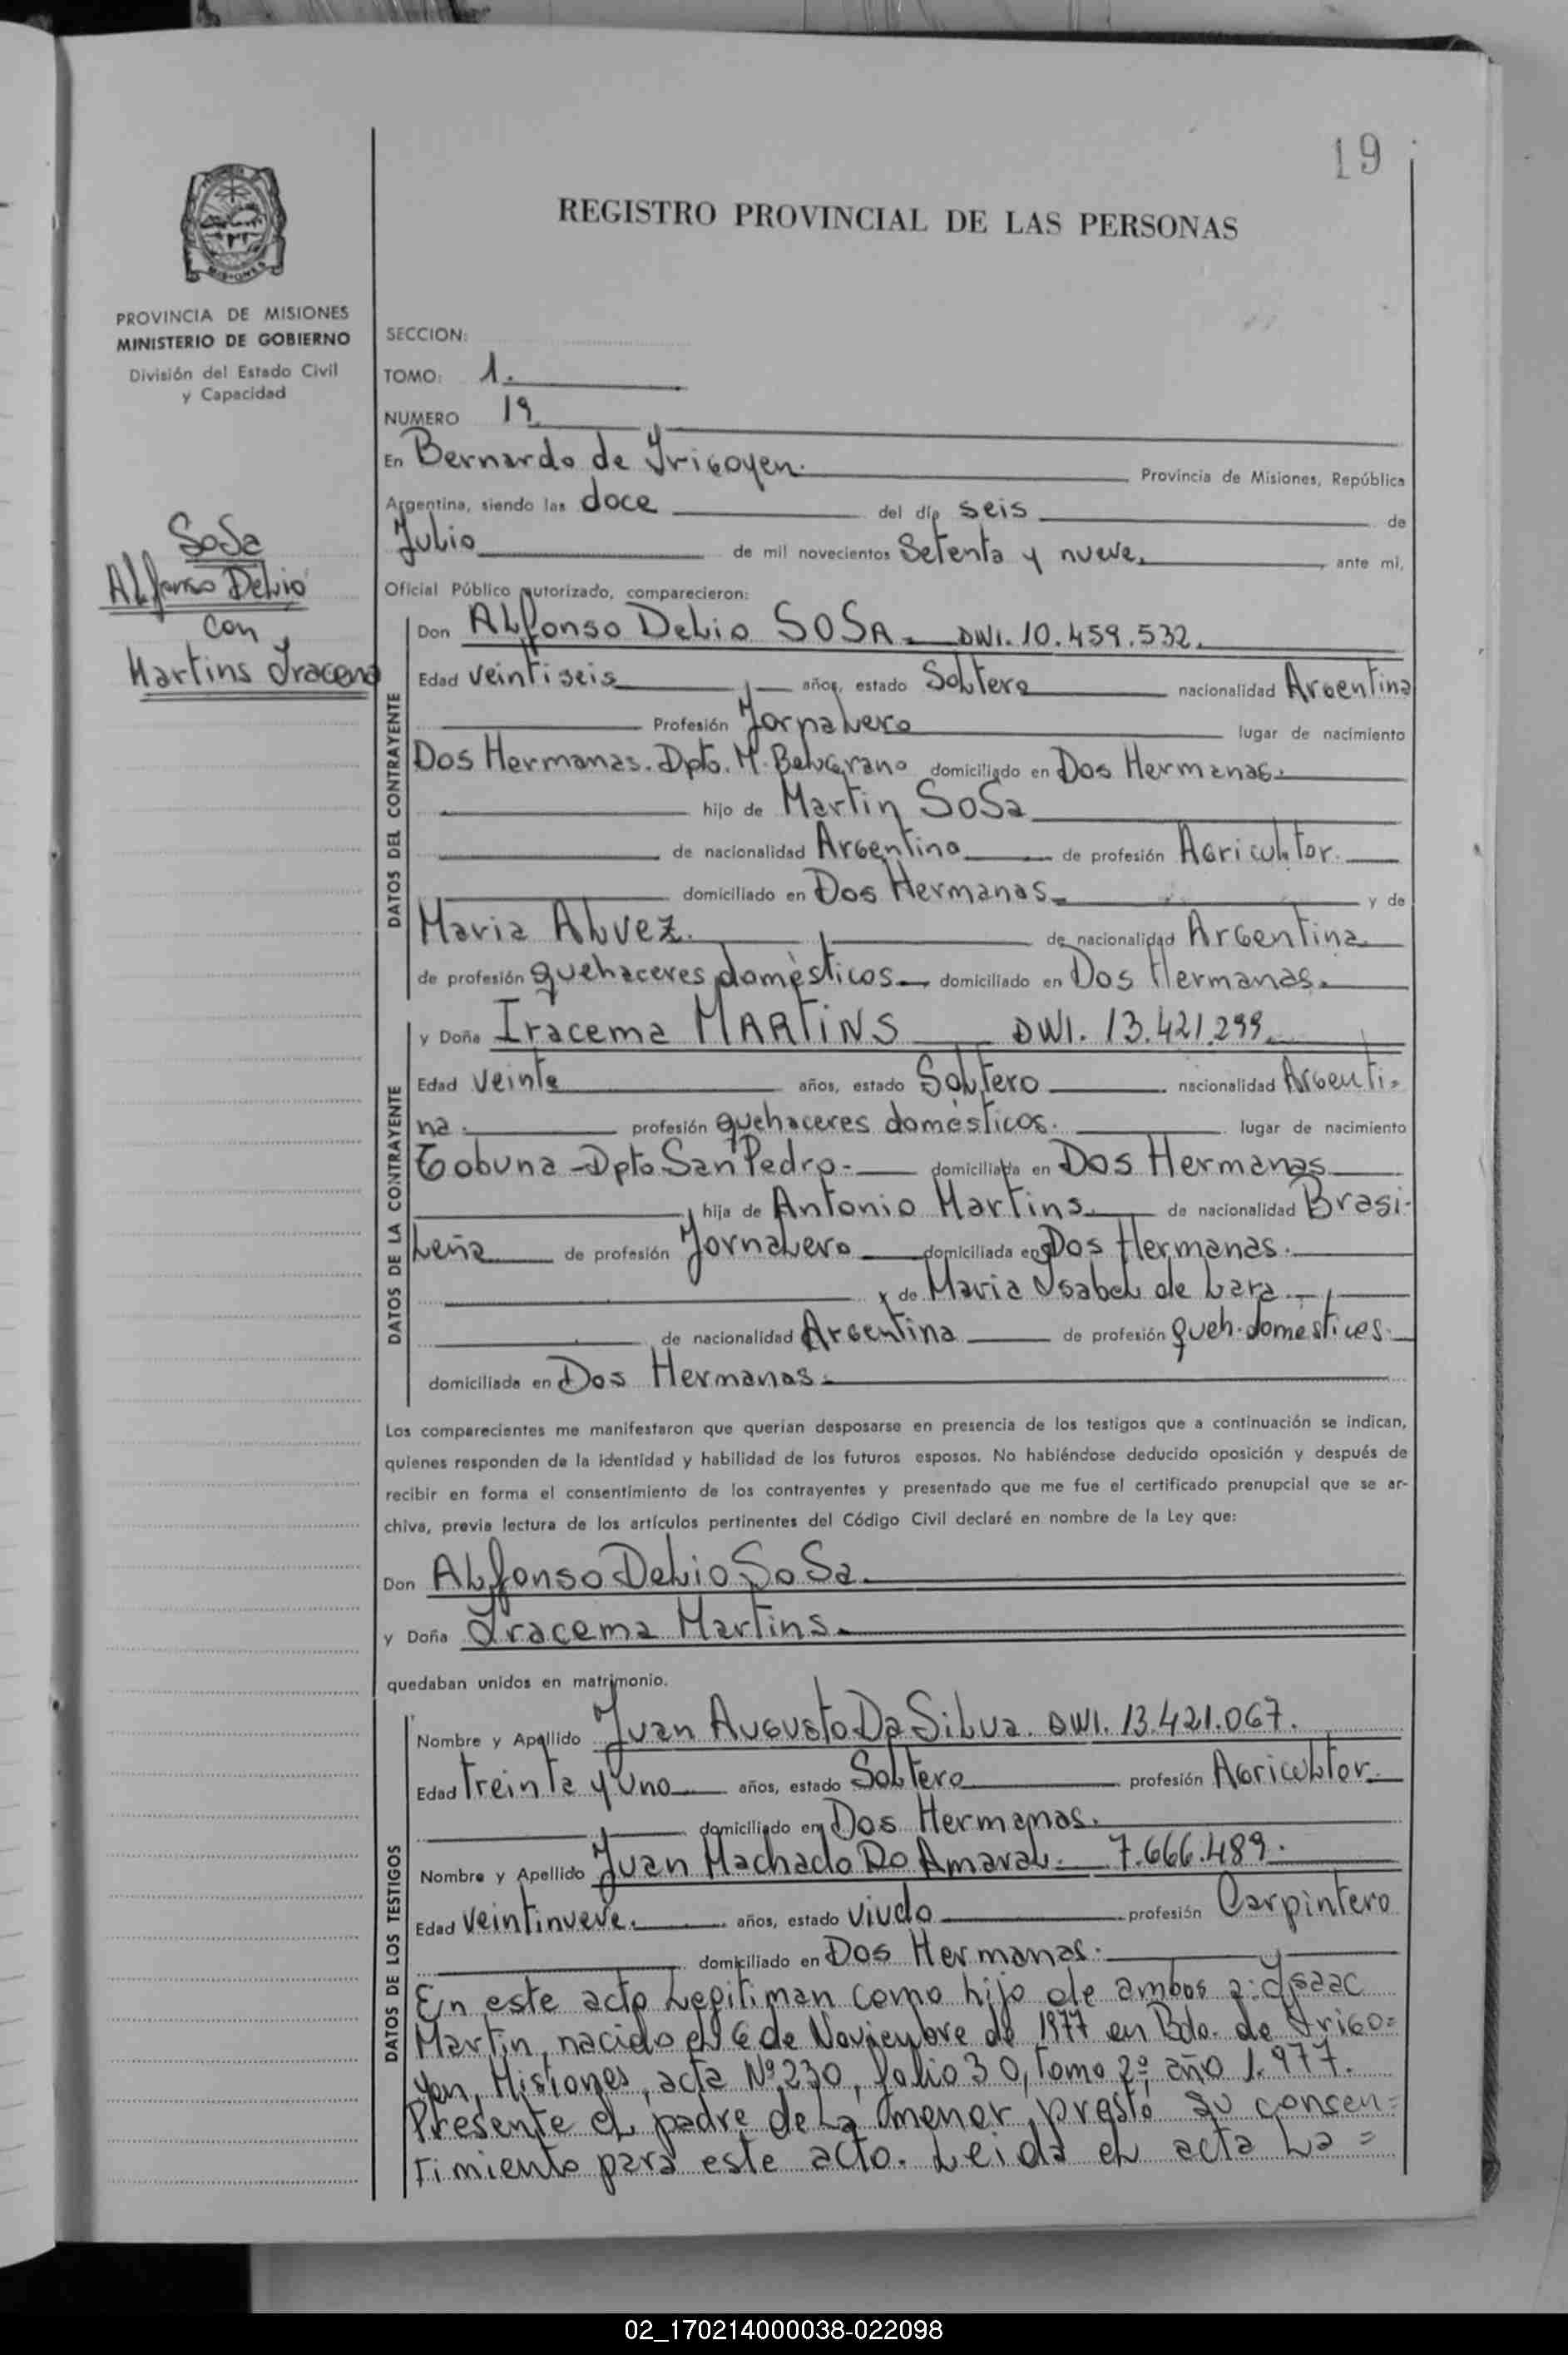 19
REGISTRO PROVINCIAL DE LAS PERSONAS
MISIONES
PROVINCIA DE MISIONES
MINISTERIO DE GOBIERNO
División del Estado Civil
y Capacidad
SoSa
Alfonso Delio
con
Martins Iracema
SECCION:
TOMO: 1.
NUMERO 19
En Bernardo de Irigoyen. Provincia de Misiones, República
Argentina, siendo las doce del día seis de
Julio de mil novecientos Setenta y nueve, ante mi,
Oficial Público autorizado, comparecieron:
DATOS DEL CONTRAYENTE
Don Alfonso Delio SOSA. DNI. 10.459.532.
Edad veintiseis años, estado Soltero nacionalidad Argentina
Profesión Jornalero lugar de nacimiento
Dos Hermanas. Dpto. M. Belgrano domiciliado en Dos Hermanas.
hijo de Martin SoSa
de nacionalidad Argentina de profesión Agricultor.
domiciliado en Dos Hermanas. y de
Maria Alvez. de nacionalidad Argentina
de profesión quehaceres domésticos. domiciliado en Dos Hermanas.
DATOS DE LA CONTRAYENTE
y Doña Iracema MARTINS DNI. 13.421.299.
Edad veinte años, estado Soltero nacionalidad Argenti=
na. profesión quehaceres domésticos. lugar de nacimiento
Tobuna - Dpto San Pedro - domiciliada en Dos Hermanas
hija de Antonio Martins de nacionalidad Brasi-
leña de profesión Jornalero domiciliada en Dos Hermanas.
y de Maria Ysabel de Lara.
de nacionalidad Argentina de profesión queh. domesticos.
domiciliada en Dos Hermanas.
Los comparecientes me manifestaron que querían desposarse en presencia de los testigos que a continuación se indican,
quienes responden de la identidad y habilidad de los futuros esposos. No habiéndose deducido oposición y después de
recibir en forma el consentimiento de los contrayentes y presentado que me fue el certificado prenupcial que se ar-
chiva, previa lectura de los artículos pertinentes del Código Civil declaré en nombre de la Ley que:
Don Alfonso Delio SoSa.
y Doña Iracema Martins.
quedaban unidos en matrimonio.
DATOS DE LOS TESTIGOS
Nombre y Apellido Juan Augusto Da Silva. DNI. 13.421.067.
Edad treinta y uno años, estado Soltero profesión Agricultor.
domiciliado en Dos Hermanas.
Nombre y Apellido Juan Machado Do Amaral. 7.666.489.
Edad veintinueve. años, estado viudo profesión Carpintero
domiciliado en Dos Hermanas.
En este acto legitiman como hijo de ambos a: Ysaac
Martin, nacido el 6 de Noviembre de 1977 en Bdo. de Irigo=
yen, Misiones, acta Nº 230, folio 30, tomo 2º, año 1.977.
Presente el padre de la menor, prestó su consen=
timiento para este acto. Leida el acta la =
02_170214000038-022098